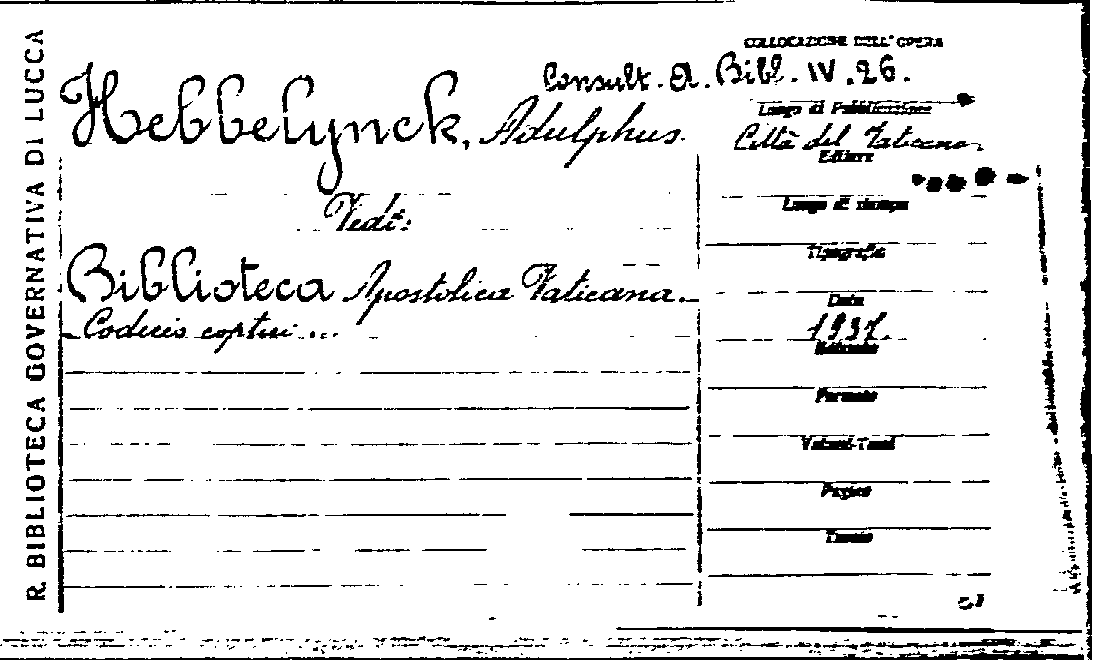 R. BIBLIOTECA GOVERNATIVA DI LUCCA
COLLOCAZIONE DELL'OPERA
Consult. A. Bibl. IV. 26.
Hebbelynck, Adulphus.
Luogo di Pubblicazione
Città del Vaticano.
Editore
Vedi:
Luogo di stampa
Tipografia
Biblioteca Apostolica Vaticana.
Data
Codices coptici ...
1937.
Edizione
Formato
Volumi-Tomi
Pagine